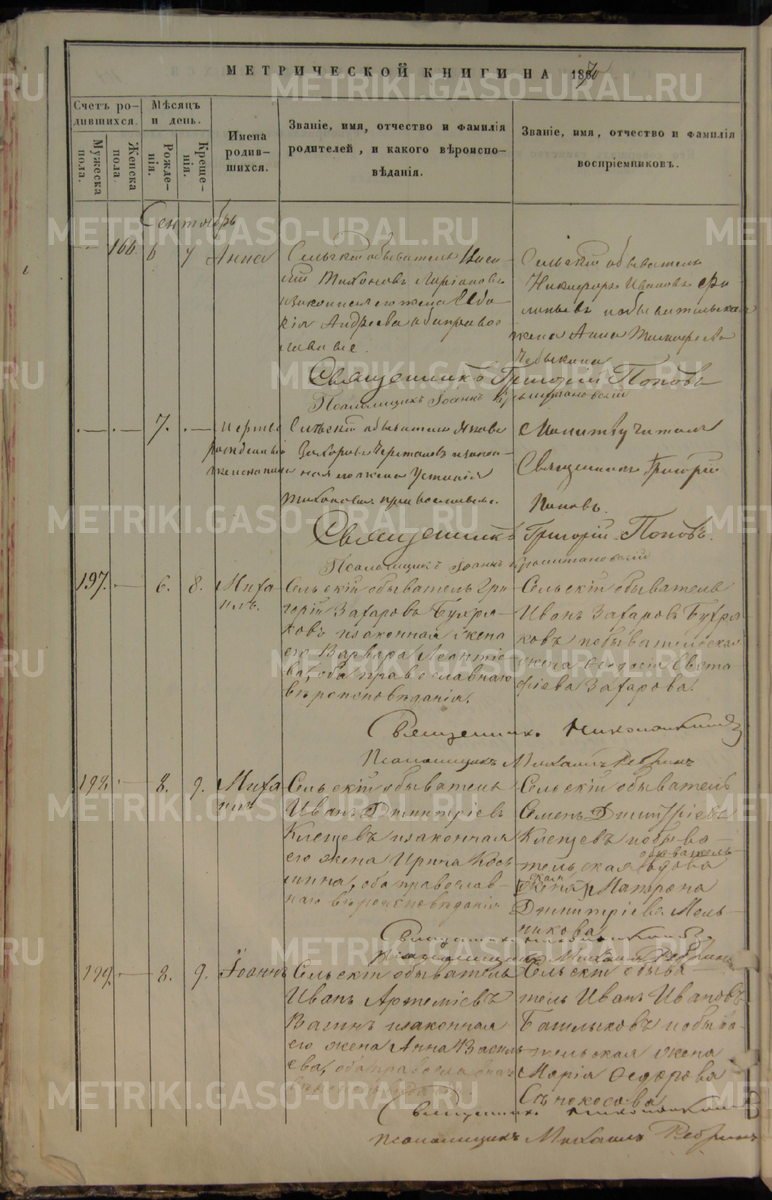 МЕТРИЧЕСКОЙ КНИГИ НА 1870
Счетъ родившихся.
Мужеска пола.
Женска пола.
Мѣсяцъ и день.
Рожденія.
Крещенія.
Имена родившихся.
Званіе, имя, отчество и фамилія родителей, и какого вѣроисповѣданія.
Званіе, имя, отчество и фамилія воспріемниковъ.
Сентябрь
166. 6 7 Анна
Сельскій обыватель Васи
лій Тихоновъ
и законная его жена Евдо
кія Андреева оба правос
лавные.
Сельскій обыватель
Никифоръ Ивановъ
и обывательская
жена Анна
Священникъ Григорій Поповъ
Псаломщикъ Іоаннъ
7. Мертво
рожденный
женска пола
Сельскій обыватель Яковъ
Захаровъ и закон
ная его жена Устинія
Тихонова православные.
Молитву читалъ
Священникъ Григорій
Поповъ.
Священникъ Григорій Поповъ.
Псаломщикъ Іоаннъ
197. 6. 8. Миха
илъ.
Сельскій обыватель Гри
горій Захаровъ Бухря
ковъ и законная жена
его Варвара Леонтіе
ва, оба православнаго
вѣроисповѣданія.
Сельскій обыватель
Иванъ Захаровъ Бухря
ковъ и обывательская
жена Захарова.
Священникъ
Псаломщикъ Михаилъ Ребринъ
198. 8. 9. Миха
илъ
Сельскій обыватель
Иванъ Дмитріевъ
Клещевъ и законная
его жена Ирина Кось
мина, оба православ
наго вѣроисповѣданія
Сельскій обыватель
Семенъ Дмитріевъ
Клещевъ и обыва
тельская вдова
Матрона
Дмитріева Мель
никова.
Священникъ
Псаломщикъ Михаилъ Ребринъ
199. 8. 9. Іоаннъ
Сельскій обыватель
Иванъ Артеміевъ
Вагинъ и законная
его жена Анна Василь
ева, оба православнаго
Сельскій обыва
тель Иванъ Ивановъ
Башлыковъ и обыва
тельская жена
Марія Ѳедорова
Священникъ
Псаломщикъ Михаилъ Ребринъ
METRIKI.GASO-URAL.RU